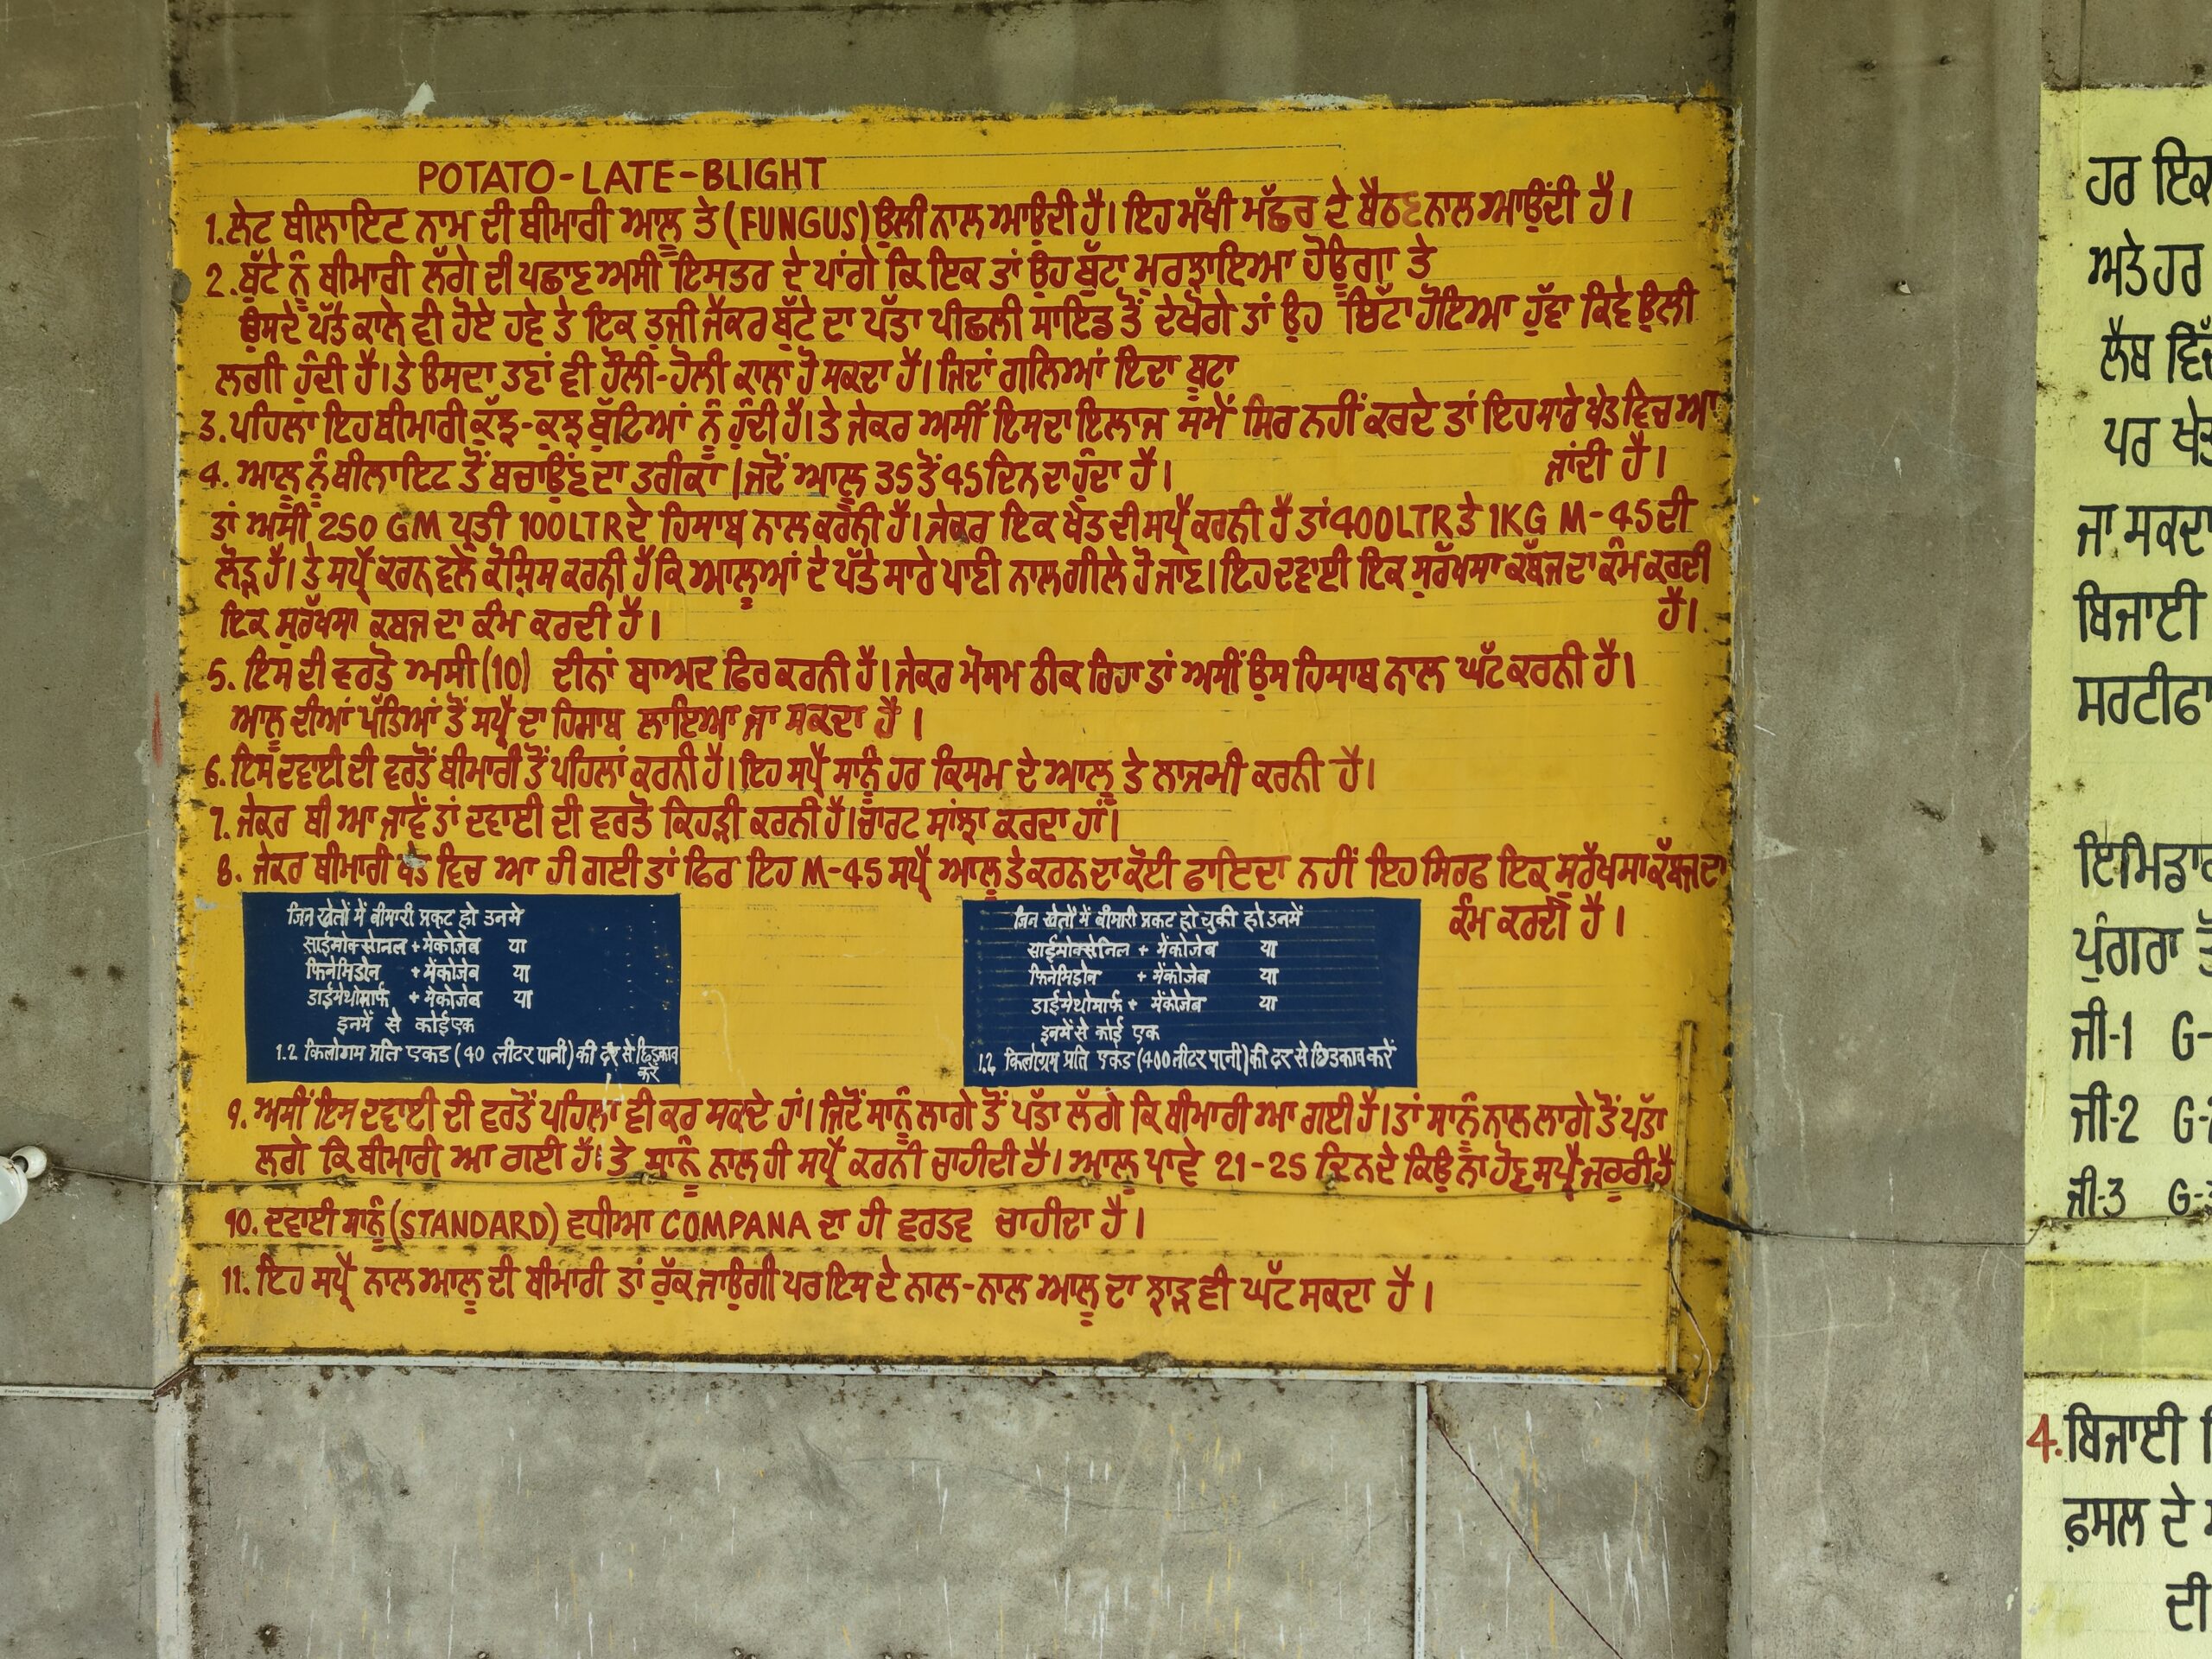 POTATO-LATE-BLIGHT
1. ਲੇਟ ਬੀਲਾਇਟ ਨਾਮ ਦੀ ਬੀਮਾਰੀ ਆਲੂ ਤੇ (FUNGUS) ਉਲੀ ਨਾਲ ਆਉਂਦੀ ਹੈ। ਇਹ ਮੱਖੀ ਮੱਛਰ ਦੇ ਬੈਠਣ ਨਾਲ ਆਉਂਦੀ ਹੈ।
2. ਬੁੱਟੇ ਨੂੰ ਬੀਮਾਰੀ ਲੱਗੇ ਦੀ ਪਛਾਣ ਅਸੀ ਇਸਤਰ ਦੇ ਪਾਂਗੇ ਕਿ ਇਕ ਤਾਂ ਉਹ ਬੁੱਟਾ ਮੁਰਝਾਇਆ ਹੋਊਗਾ ਤੇ
ਉਸਦੇ ਪੱਤੇ ਕਾਲੇ ਵੀ ਹੋਏ ਹਵੇ ਤੇ ਇਕ ਤੁਜੀ ਜੇਕਰ ਬੁੱਟੇ ਦਾ ਪੱਤਾ ਪੀਛਲੀ ਸਾਇਡ ਤੋਂ ਦੇਖੋਗੇ ਤਾਂ ਉਹ ਚਿੱਟਾ ਹੋਇਆ ਹੁੱਵਾ ਕਿਵੇ ਉਲੀ
ਲਗੀ ਹੁੰਦੀ ਹੈ। ਤੇ ਉਸਦਾ ਤਣਾਂ ਵੀ ਹੌਲੀ-ਹੋਲੀ ਕਾਲਾ ਹੋ ਸਕਦਾ ਹੈ। ਜਿਦਾਂ ਗਲਿਆਂ ਇਦਾ ਬੁਟਾ
3. ਪਹਿਲਾ ਇਹ ਬੀਮਾਰੀ ਕੁੱਝ-ਕੁਝ ਬੁੱਟਿਆਂ ਨੂੰ ਹੁੰਦੀ ਹੈ। ਤੇ ਜੇਕਰ ਅਸੀਂ ਇਸਦਾ ਇਲਾਜ ਸਮੇਂ ਸਿਰ ਨਹੀਂ ਕਰਦੇ ਤਾਂ ਇਹ ਸਾਰੇ ਖੇਤ ਵਿਚ ਆ
ਜਾਂਦੀ ਹੈ।
4. ਆਲੂ ਨੂੰ ਬੀਲਾਇਟ ਤੋਂ ਬਚਾਉਂਣ ਦਾ ਤਰੀਕਾ। ਜਦੋਂ ਆਲੂ 35 ਤੋਂ 45 ਦਿਨ ਦਾ ਹੁੰਦਾ ਹੈ।
ਤਾਂ ਅਸੀ 250 GM ਪ੍ਰਤੀ 100LTR ਦੇ ਹਿਸਾਬ ਨਾਲ ਕਰਨੀ ਹੈ। ਜੇਕਰ ਇਕ ਖੇਤ ਦੀ ਸਪ੍ਰੈ ਕਰਨੀ ਹੈ ਤਾਂ 400LTR ਤੇ 1KG M-45 ਦੀ
ਲੋੜ ਹੈ। ਤੇ ਸਪ੍ਰੈ ਕਰਨ ਵੇਲੇ ਕੋਸ਼ਿਸ ਕਰਨੀ ਹੈ ਕਿ ਆਲੂਆਂ ਦੇ ਪੱਤੇ ਸਾਰੇ ਪਾਣੀ ਨਾਲ ਗੀਲੇ ਹੋ ਜਾਣ। ਇਹ ਦਵਾਈ ਇਕ ਸੁਰੱਖਸਾ ਕੱਬਜ ਦਾ ਕੰਮ ਕਰਦੀ
ਹੈ।
ਇਕ ਸੁਰੱਖਸਾ ਕਬਜ ਦਾ ਕੰਮ ਕਰਦੀ ਹੈ।
5. ਇਸ ਦੀ ਵਰਤੋ ਅਸੀ (10) ਦੀਨਾਂ ਬਾਅਦ ਫਿਰ ਕਰਨੀ ਹੈ। ਜੇਕਰ ਮੋਸਮ ਠੀਕ ਰਿਹਾ ਤਾਂ ਅਸੀਂ ਉਸ ਹਿਸਾਬ ਨਾਲ ਘੱਟ ਕਰਨੀ ਹੈ।
ਆਲੂ ਦੀਆਂ ਪੱਤਿਆਂ ਤੋਂ ਸਪ੍ਰੈ ਦਾ ਹਿਸਾਬ ਲਾਇਆ ਜਾ ਸਕਦਾ ਹੈ।
6. ਇਸ ਦਵਾਈ ਦੀ ਵਰਤੋਂ ਬੀਮਾਰੀ ਤੋਂ ਪਹਿਲਾਂ ਕਰਨੀ ਹੈ। ਇਹ ਸਪ੍ਰੈ ਸਾਨੂੰ ਹਰ ਕਿਸਮ ਦੇ ਆਲੂ ਤੇ ਲਾਜਮੀ ਕਰਨੀ ਹੈ।
7. ਜੇਕਰ ਬੀ ਆ ਜਾਵੇਂ ਤਾਂ ਦਵਾਈ ਦੀ ਵਰਤੋ ਕਿਹੜੀ ਕਰਨੀ ਹੈ। ਚਾਰਟ ਸਾਂਝਾ ਕਰਦਾ ਹਾਂ।
8. ਜੇਕਰ ਬੀਮਾਰੀ ਖੇਤ ਵਿਚ ਆ ਹੀ ਗਈ ਤਾਂ ਫਿਰ ਇਹ M-45 ਸਪ੍ਰੈ ਆਲੂ ਤੇ ਕਰਨ ਦਾ ਕੋਈ ਫਾਇਦਾ ਨਹੀਂ ਇਹ ਸਿਰਫ ਇਕ ਸੁਰੱਖਸਾ ਕੱਬਜ ਦਾ
ਕੰਮ ਕਰਦੀ ਹੈ।
जिन खेतों में बीमारी प्रकट हो उनमे
साईमोक्सोनल + मेकोजेब या
फिनेमिडोन + मेंकोजेब या
डाईमेथोमार्फ + मेकोजेब या
इनमें से कोई एक
1.2 किलोग्राम प्रति एकड (40 लीटर पानी) की दर से छिड़काव
करें
जिन खेतों में बीमारी प्रकट हो चुकी हो उनमें
साईमोक्सेनिल + मेंकोजेब या
फिनेमिडोन + मेंकोजेब या
डाईमेथोमार्फ + मेंकोजेब या
इनमें से कोई एक
1.2 किलोग्राम प्रति एकड (400 लीटर पानी) की दर से छिडकाव करें
9. ਅਸੀਂ ਇਸ ਦਵਾਈ ਦੀ ਵਰਤੋਂ ਪਹਿਲਾ ਵੀ ਕਰ ਸਕਦੇ ਹਾਂ। ਜਿਦੋਂ ਸਾਨੂੰ ਲਾਗੇ ਤੋਂ ਪੱਤਾ ਲੱਗੇ ਕਿ ਬੀਮਾਰੀ ਆ ਗਈ ਹੈ। ਤਾਂ ਸਾਨੂੰ ਨਾਲ ਲਾਗੇ ਤੋਂ ਪੱਤਾ
ਲਗੇ ਕਿ ਬੀਮਾਰੀ ਆ ਗਈ ਹੈ। ਤੇ ਸਾਨੂੰ ਨਾਲ ਹੀ ਸਪ੍ਰੈ ਕਰਨੀ ਚਾਹੀਦੀ ਹੈ। ਆਲੂ ਪਾਵੇ 21-25 ਦਿਨ ਦੇ ਕਿਉਂ ਨਾ ਹੋਣ ਸਪ੍ਰੈ ਜਰੂਰੀ ਹੈ
10. ਦਵਾਈ ਸਾਨੂੰ (STANDARD) ਵਧੀਆ COMPANA ਦਾ ਹੀ ਵਰਤਣ ਚਾਹੀਦਾ ਹੈ।
11. ਇਹ ਸਪ੍ਰੈ ਨਾਲ ਆਲੂ ਦੀ ਬੀਮਾਰੀ ਤਾਂ ਰੁੱਕ ਜਾਉਗੀ ਪਰ ਇਸ ਦੇ ਨਾਲ-ਨਾਲ ਆਲੂ ਦਾ ਝਾੜ ਵੀ ਘੱਟ ਸਕਦਾ ਹੈ।
ਹਰ ਇਕ
ਅਤੇ ਹਰ
ਲੈਬ ਵਿੱਚ
ਪਰ ਖੇਤ
ਜਾ ਸਕਦਾ
ਬਿਜਾਈ
ਸਰਟੀਫਾ
ਇਮਿਡਾਕ
ਪੁੰਗਰਾ ਤੋਂ
ਜੀ-1 G-
ਜੀ-2 G-
ਜੀ-3 G-
4. ਬਿਜਾਈ
ਫ਼ਸਲ ਦੇ
ਦੀ